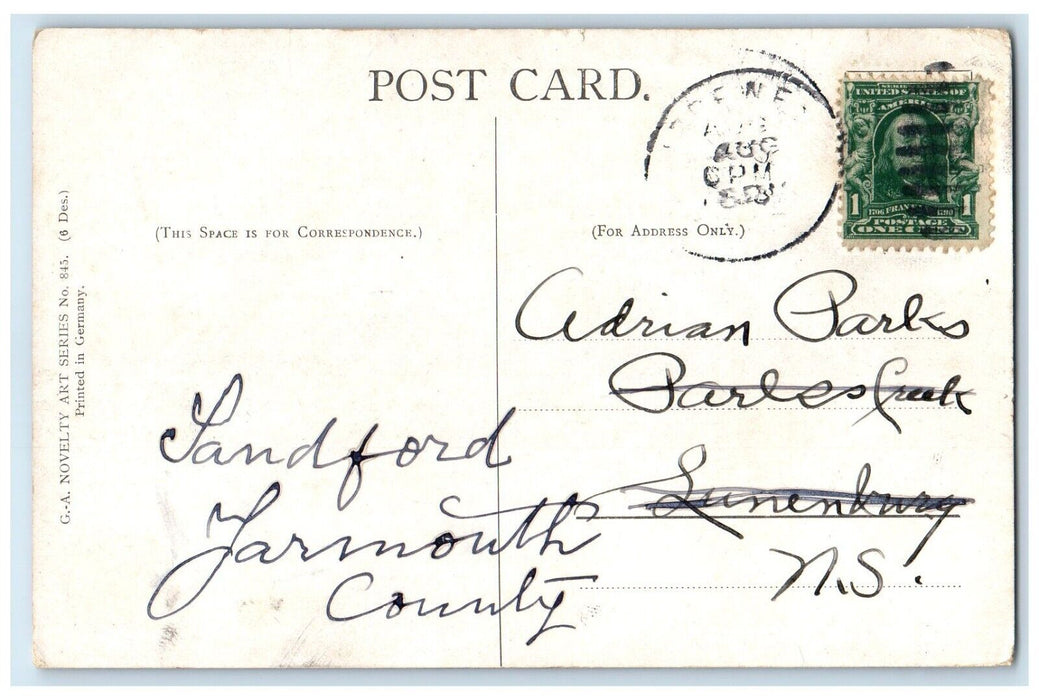 POST CARD.
AUG
6 PM
SERIES 1902
UNITED STATES OF
AMERICA
1 1706 FRANKLIN 1790 1
POSTAGE
ONE CENT
(THIS SPACE IS FOR CORRESPONDENCE.)
(FOR ADDRESS ONLY.)
G.-A. NOVELTY ART SERIES No. 845. (6 Des.)
Printed in Germany.
Adrian Parks
Parks Creek
Lunenburg
N.S.
Sandford
Yarmouth
County